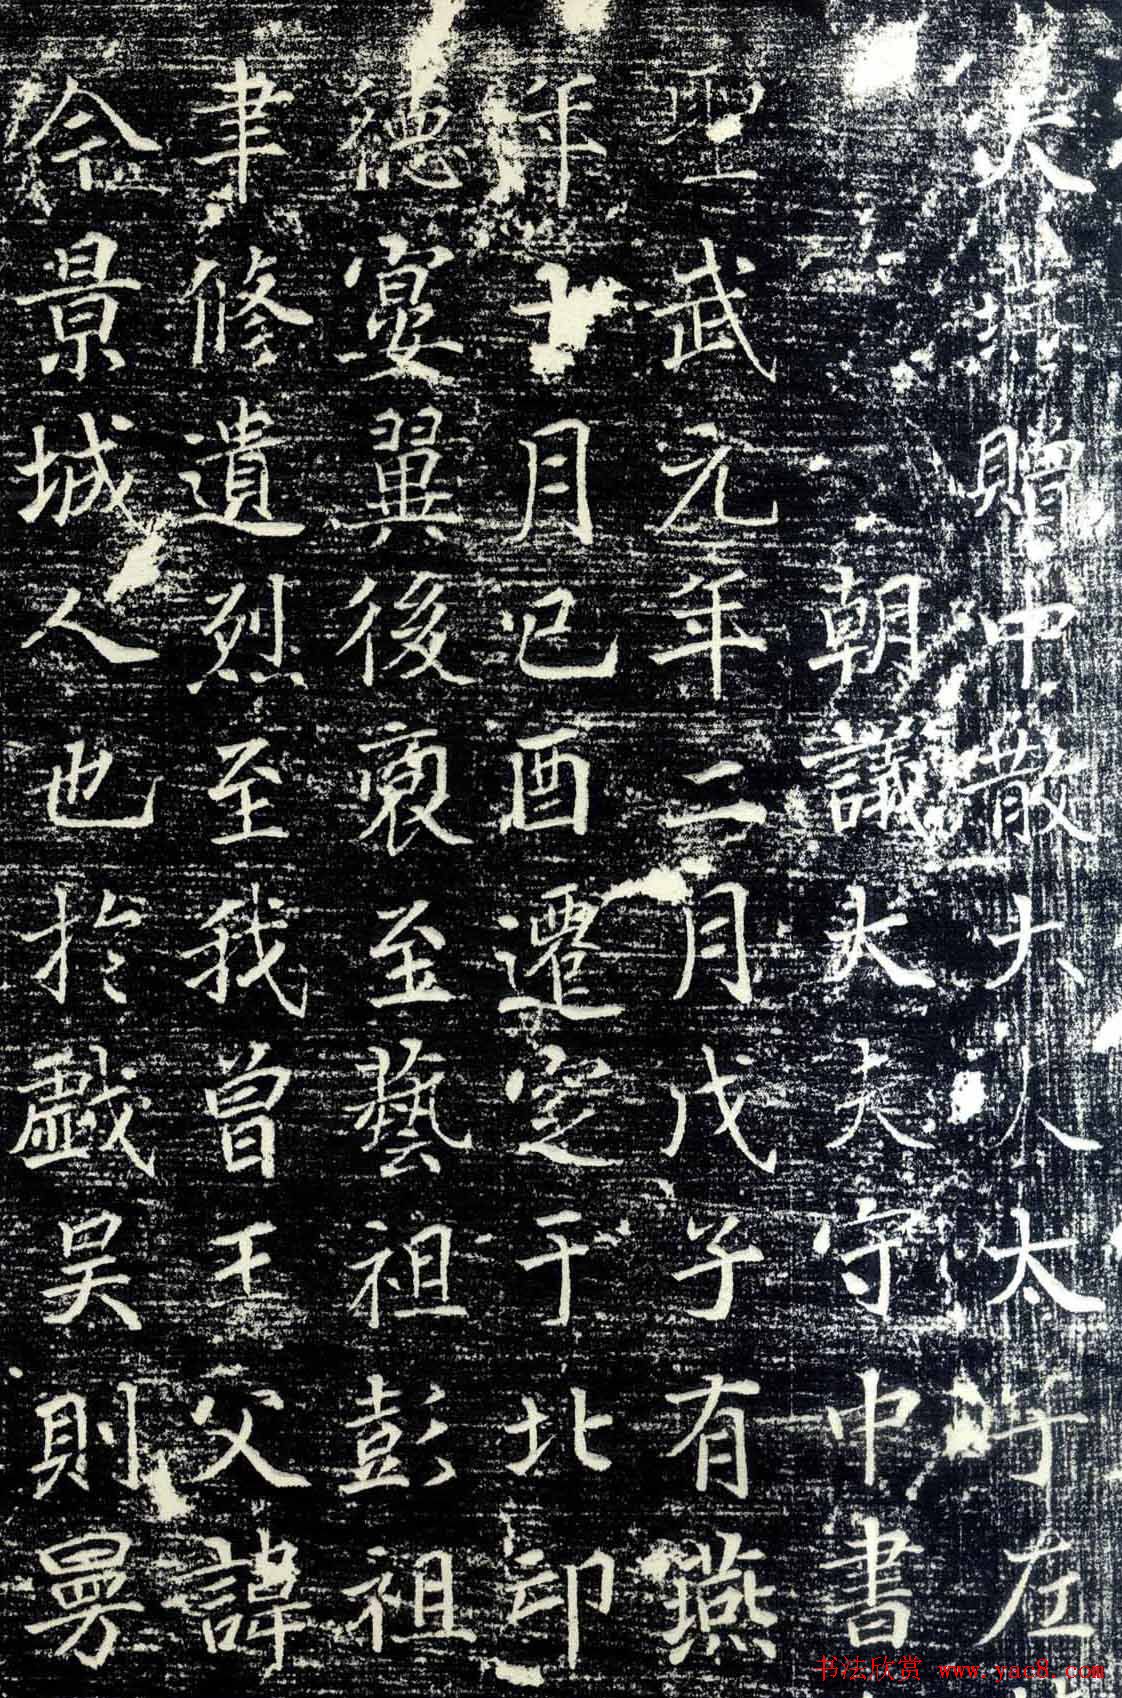 贈中散大夫太子左
朝議大夫守中書
聖武元年二月戊子有燕
年十月己酉遷窆于北印
德宴翼後裒至藝祖彭祖
聿修遺烈至我曾王父諱
今景城人也於戲昊則曼
书法欣赏 www.yac8.com